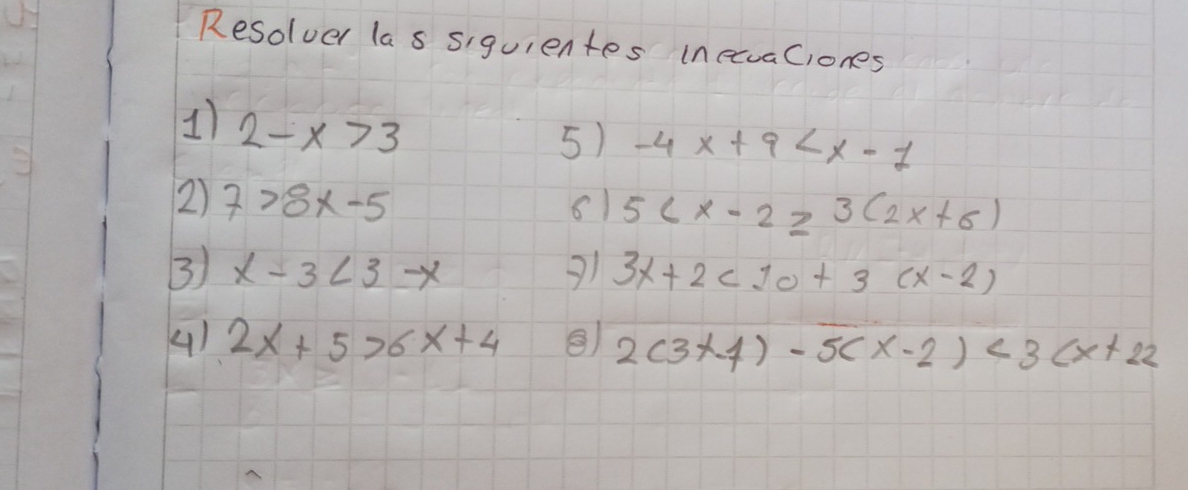 Resolver las siguientes inecuaciones
1) 2-x>3
2) 7>8x-5
3) x-3<3-x
4) 2x+5>6x+4
5) -4x+9<x-1
6) 5<x-2≥3(2x+6)
7) 3x+2<10+3(x-2)
8) 2(3x-1)-5(x-2)<3(x+22